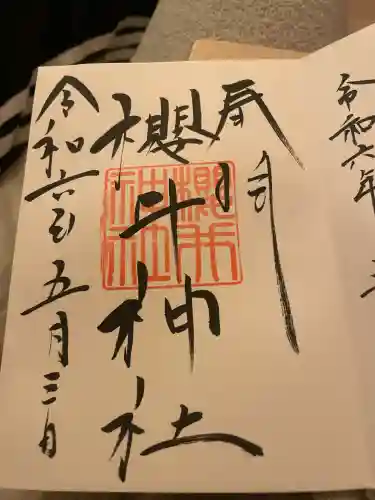 奉拝
櫻井神社
令和六年五月三日
令和六年